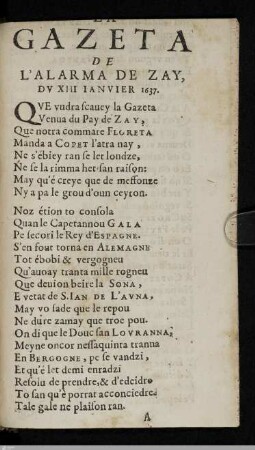 LA
GAZETA
DE
L'ALARMA DE ZAY,
DV XIII IANVIER 1637.
QVE vudra scauey la Gazeta
Venua du Pay de ZAY,
Que notra commare FLORETA
Manda a COPET l'atra nay,
Ne s'ébiey ran se ler londze,
Ne se la rimma her-san raison:
May qu'é creye que de messonze
Ny a pa le grou d'oun ceyron.
Noz étion to consola
Quan le Capetannou GALA
Pe secori le Rey d'ESPAGNE.
S'en fout torna en ALEMAGNE
Tot ébobi & vergogneu
Qu'auoay tranta mille rogneu
Que deuion beire la SONA,
E vetat de S. IAN DE L'AVNA,
May vo sade que le repou
Ne dure zamay que troe pou.
On di que le Douc san LOVRANNA,
Meyne oncor nessaquinta tranna
En BERGOGNE, pe se vandzi,
Et qu'é let demi enradzi
Resoiu de prendre, & d'edcidre
To san qu'é porrat acconciedre,
Tale gale ne plaison ran.
A